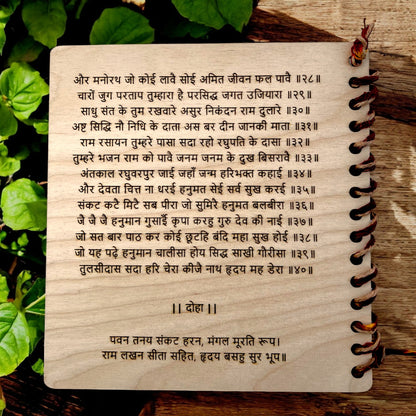 और मनोरथ जो कोई लावै सोई अमित जीवन फल पावै ॥२८॥
चारों जुग परताप तुम्हारा है परसिद्ध जगत उजियारा ॥२९॥
साधु संत के तुम रखवारे असुर निकंदन राम दुलारे ॥३०॥
अष्ट सिद्धि नौ निधि के दाता अस बर दीन जानकी माता ॥३१॥
राम रसायन तुम्हरे पासा सदा रहो रघुपति के दासा ॥३२॥
तुम्हरे भजन राम को पावै जनम जनम के दुख बिसरावै ॥३३॥
अंतकाल रघुवरपुर जाई जहाँ जन्म हरिभक्त कहाई ॥३४॥
और देवता चित्त ना धरई हनुमत सेई सर्व सुख करई ॥३५॥
संकट कटै मिटे सब पीरा जो सुमिरै हनुमत बलबीरा ॥३६॥
जै जै जै हनुमान गुसाईँ कृपा करहु गुरु देव की नाई ॥३७॥
जो सत बार पाठ कर कोई छूटहि बंदि महा सुख होई ॥३८॥
जो यह पढ़े हनुमान चालीसा होय सिद्ध साखी गौरीसा ॥३९॥
तुलसीदास सदा हरि चेरा कीजै नाथ हृदय मह डेरा ॥४०॥
|| दोहा ||
पवन तनय संकट हरन, मंगल मूरति रूप।
राम लखन सीता सहित, हृदय बसहु सुर भूप॥